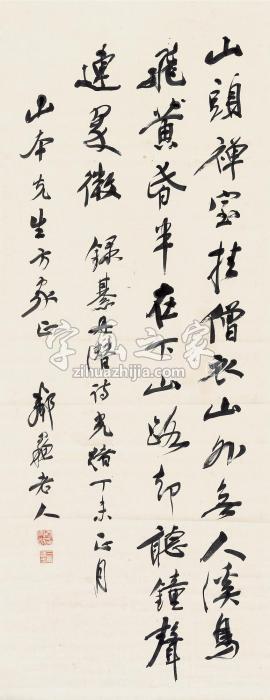 山頭禅室挂僧衣山外無人溪鳥
飛黄昏半在下山路却聽鐘聲
連翠微 錄綦毋潛詩光緒丁未正月
山本先生方家正 鄰蘇老人
字画之家
zihuazhijia.com